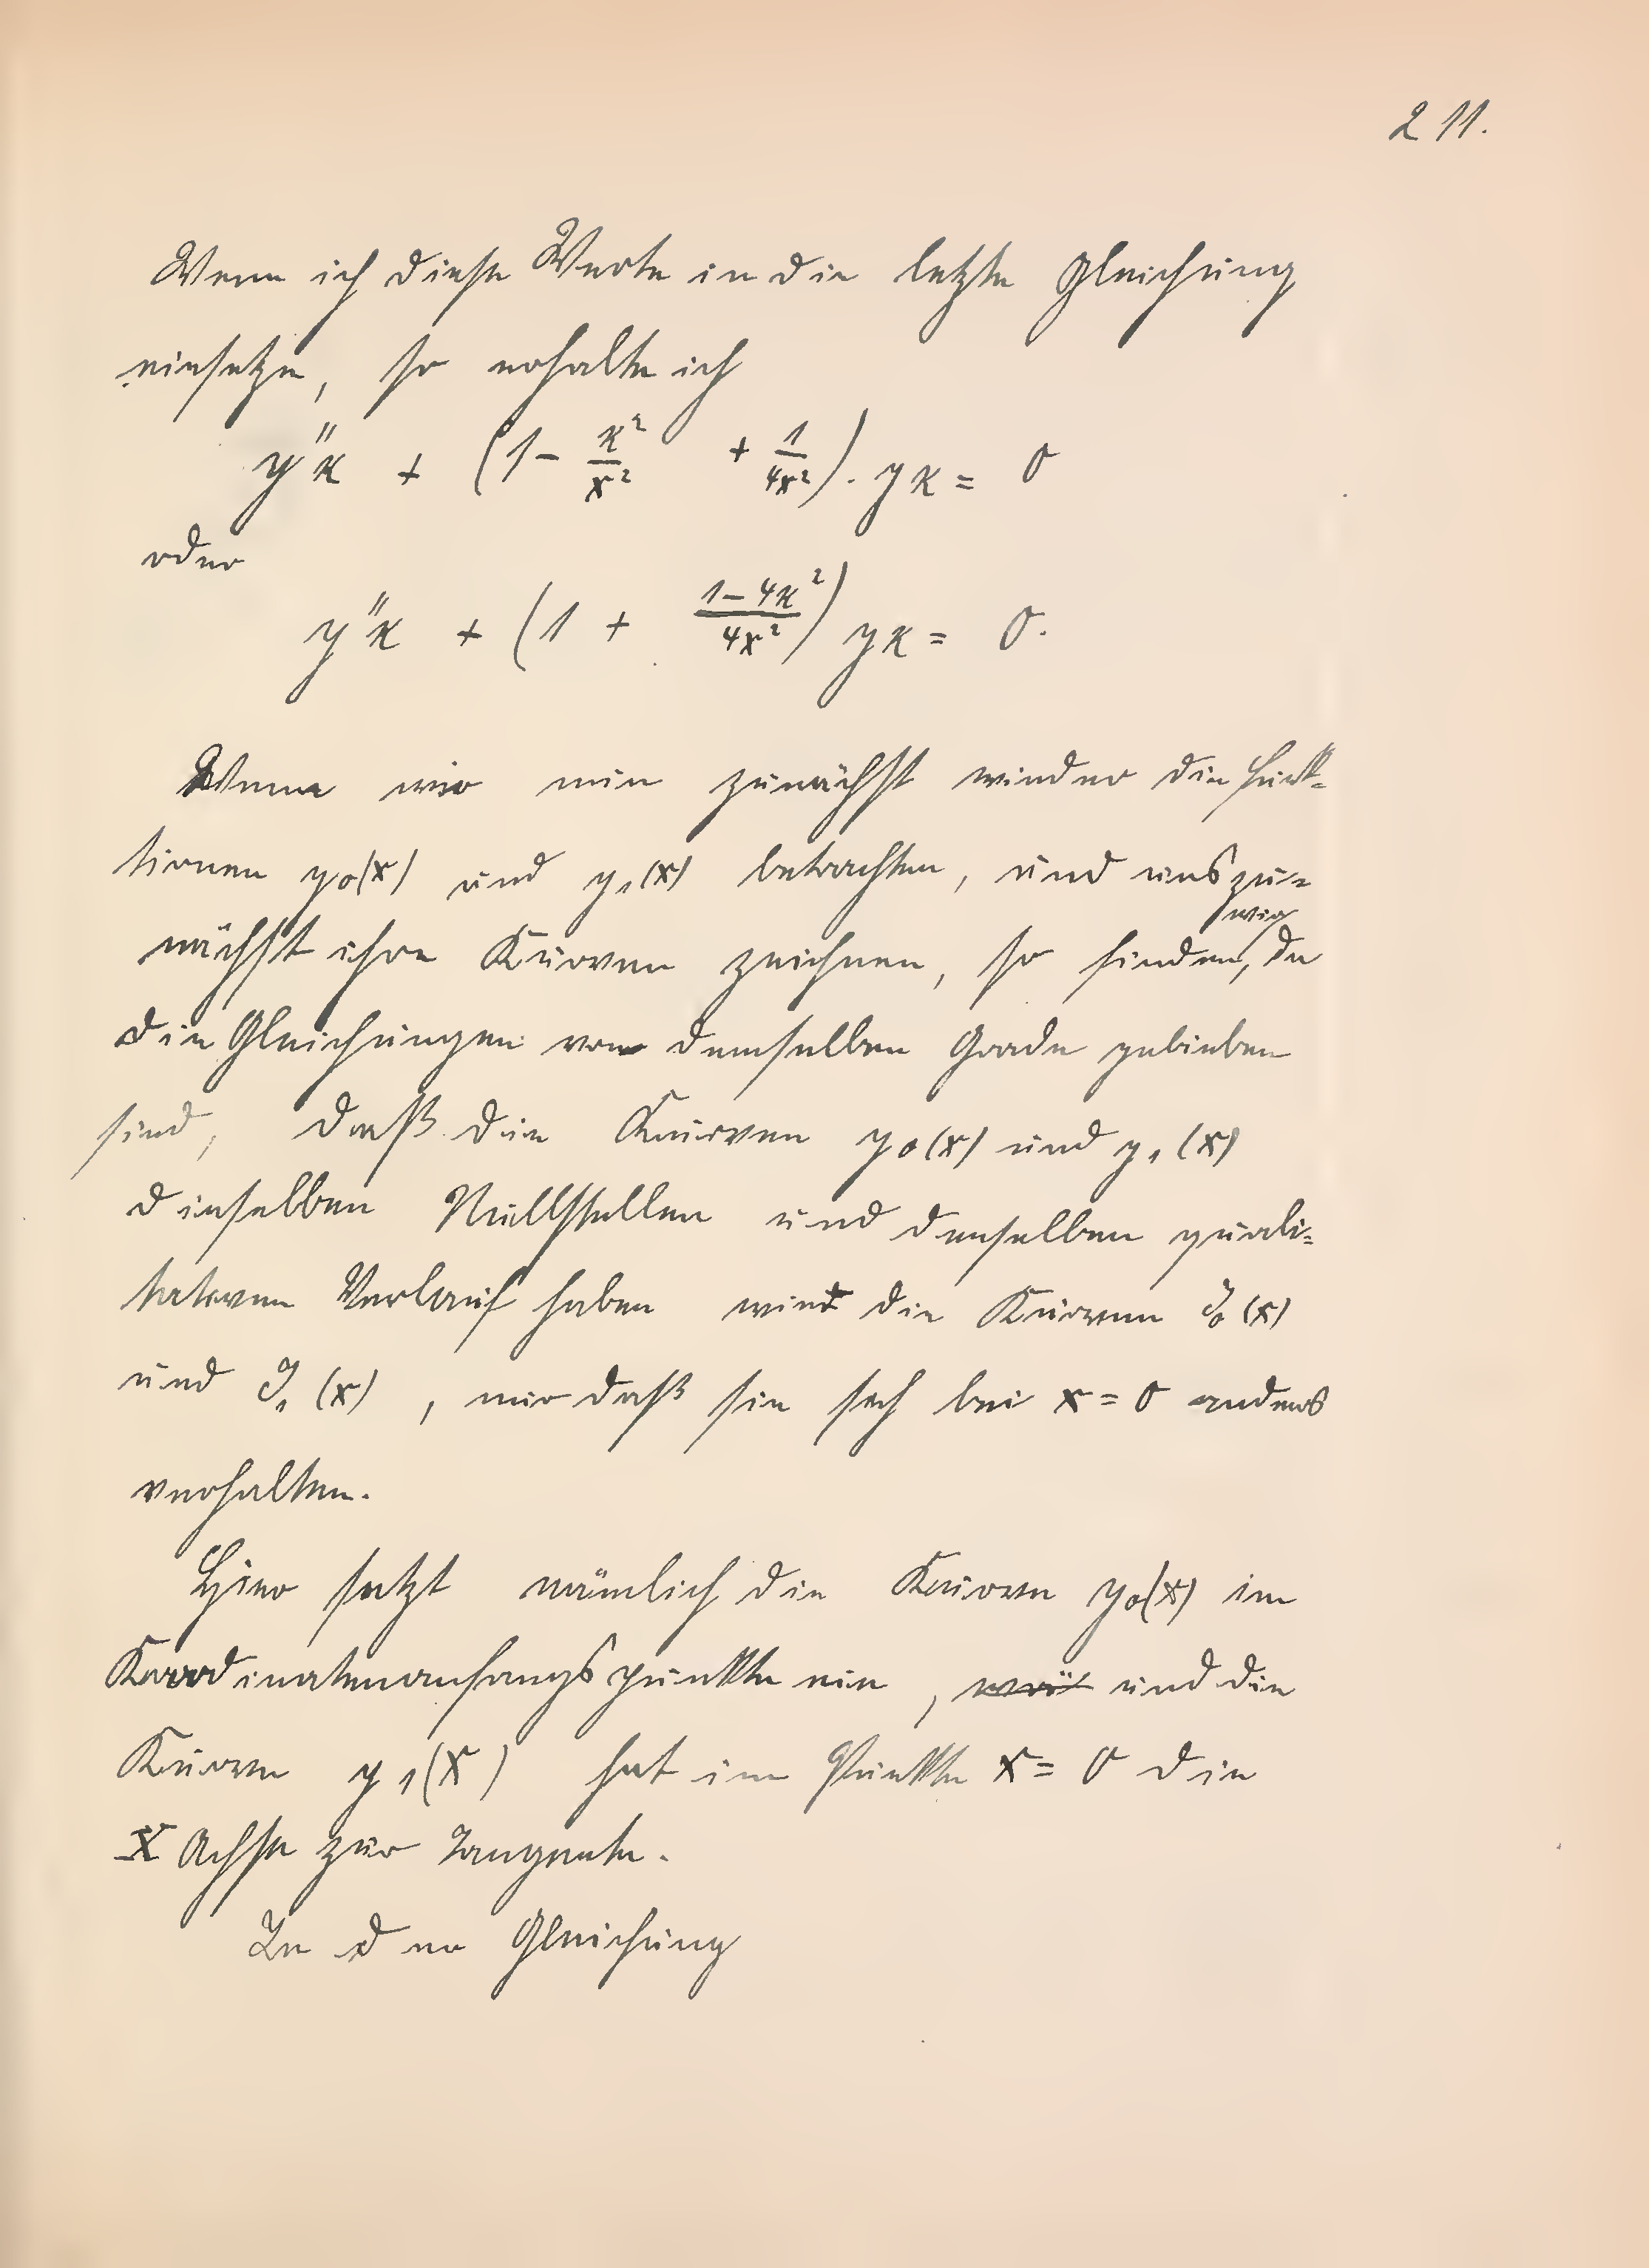 211.
Wenn ich diese Werte in die letzte Gleichung
einsetze, so erhalte ich
y''κ + (1 - κ²/x² + 1/4x²) . yκ = 0
oder
y''κ + (1 + (1-4κ²)/4x²) yκ = 0.
Wenn wir nun zunächst wieder die Funk=
tionen y₀(x) und y₁(x) betrachten, und uns zu=
nächst ihre Kurven zeichnen, so finden wir, da
die Gleichungen von demselben Grade geblieben
sind, daß die Kurven y₀(x) und y₁(x)
dieselben Nullstellen und denselben quali=
tativen Verlauf haben wie die Kurven J₀(x)
und J₁(x), nur daß sie sich bei x=0 anders
verhalten.
Hier setzt nämlich die Kurve y₀(x) im
Koordinatenanfangspunkte ein, und die
Kurve y₁(x) hat im Punkte x=0 die
X Achse zur Tangente.
In der Gleichung